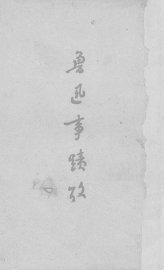 魯迅事蹟攷